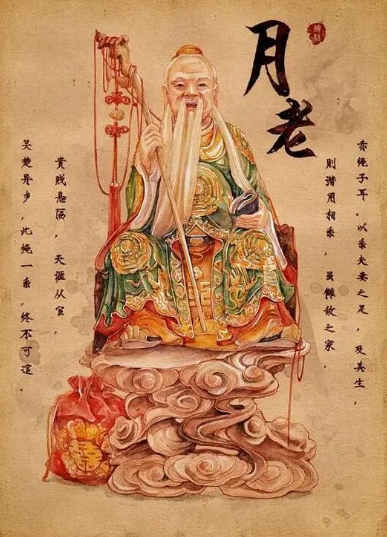 月老
赤绳子耳。以系夫妻之足，及其生，
則潜用相系，虽雠敌之家，
貴贱悬隔，天涯从宦，
吴楚异乡，此绳一系，终不可逭。